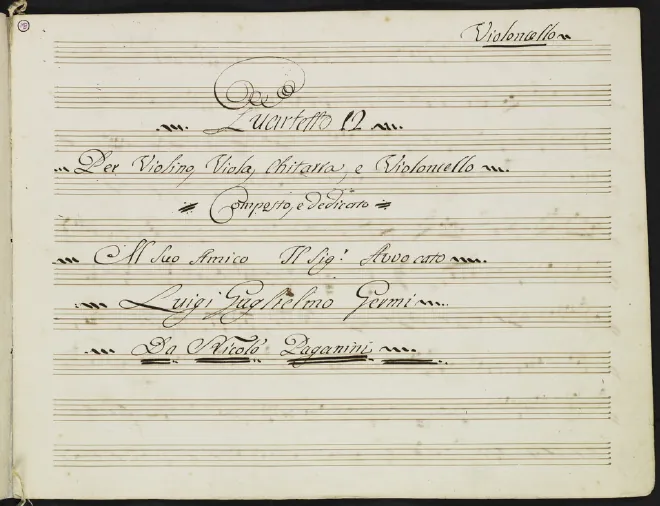 Violoncello
Quartetto 12
Per Violino, Viola, Chitarra, e Violoncello
Composto, e Dedicato
Al Suo Amico Il Sig.r Avvocato
Luigi Guglielmo Germi
Da Nicolò Paganini